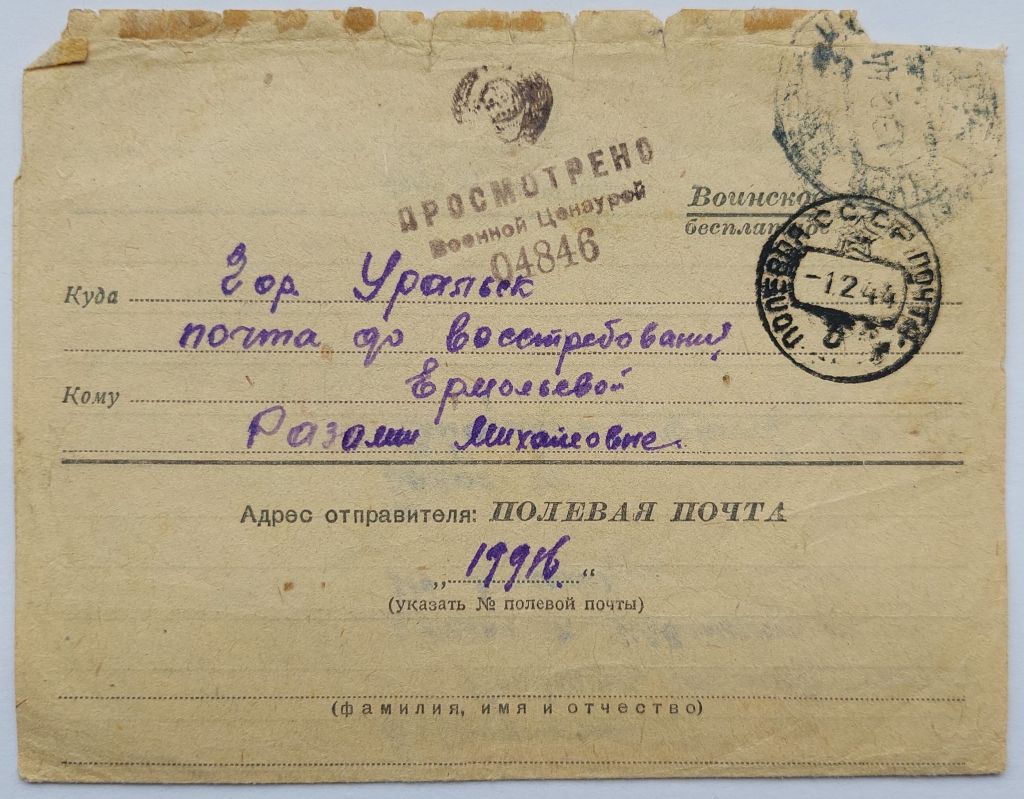 ПРОСМОТРЕНО
Военной Цензурой
04846
Воинское
бесплатно
ПОЛЕВАЯ ПОЧТА СССР
-1.2.44
Куда гор Уральск
почта до востребовани
Кому Ермольевой
Разалии Михайловне.
Адрес отправителя: ПОЛЕВАЯ ПОЧТА
„ 19916. “
(указать № полевой почты)
(фамилия, имя и отчество)